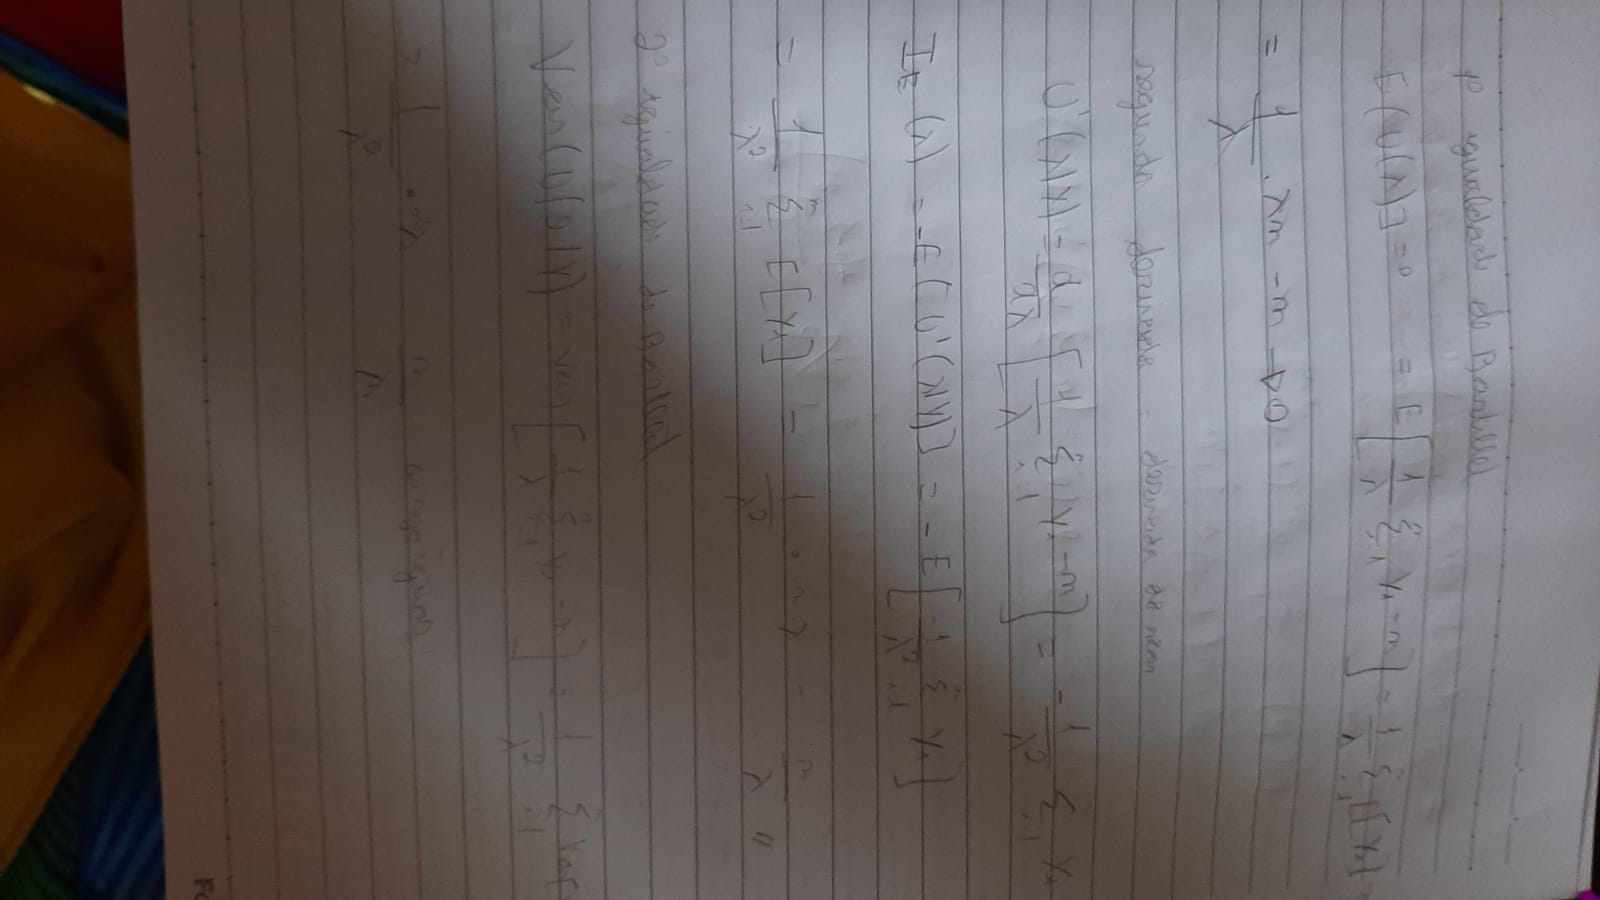 1º igualdade de Bartlett
E[U(λ)]=0 = E[1/λ Σ i=1 Yi - n] = 1/λ Σ i=1 E[Yi]
= 1/λ . λn - n → 0
segunda derivada. derivada
U'(λ|Y) = d/dλ [1/λ Σ i=1 Yi - n] = -1/λ² Σ i=1 Yi
I_E(λ) = -E[U'(λ|Y)] = -E[-1/λ² Σ i=1 Yi]
= 1/λ² Σ i=1 E[Yi] = 1/λ² . n.λ = n/λ //
2º igualdade de Bartlett
Var(U(θ|Y)) = Var[1/λ Σ i=1 Yi - n] = 1/λ² Σ i=1 Var
= 1/λ² . nλ n/λ
Fo